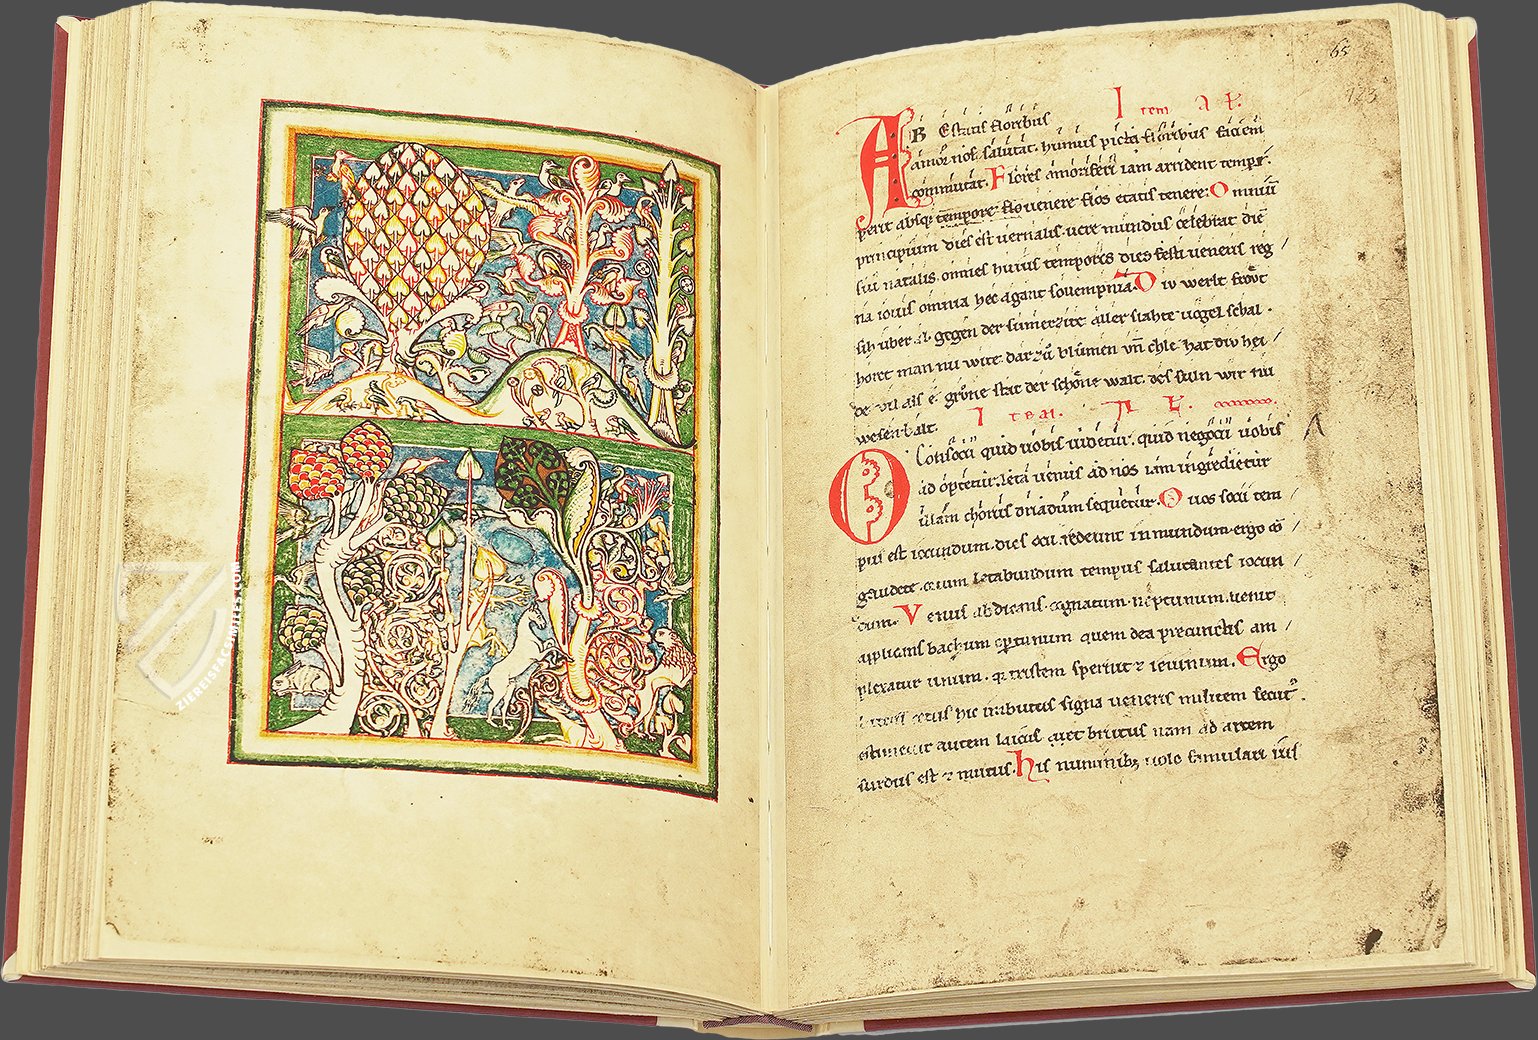 65
123
Item A
AB Estatis floribus
amor nos salutat. humus picta floribus faciem
commutat. Flores amoriferi iam arrident temporī.
perit absq; tempore flo uenere flos etatis tenere. Omniū
principium dies est uernalis. uere mundus celebrat diē
sui natalis. omnes huius temporis dies festi ueneris reg
na iouis omnia hec agant sollempnia. Div werlt frovt
sih uber al. gegen der sumerzite. aller slahte uogel schal.
horet man nu wite. dar zů blůmen vñ chle. hat div hei
de vil als e. grůne stat der schone walt. des suln wir nu
wesen balt.
Item.
O Consocii quid uobis uidetur. quid negocii uobis
ad optetur. leta uenus ad nos iam ingredietur
illam chorus driadum sequetur. O uos socii tem
pus est iocundum. dies ocii redeunt in mundum. ergo cō
gaudete. cetum letabundum tempus salutantes iocun
dum. Venus abdicans cognatum neptunum. uenit
applicans bachum oportunum quem dea pre cunctis am
plexatur unum. tristem spernit et ieiunum. Ergo
cetus hic imbutus signa ueneris militem secut
autem laicus brutus nam ad artem
surdus est et mutus. His numinib; uolo famulari ius
ZIEREISFACSIMILES.COM